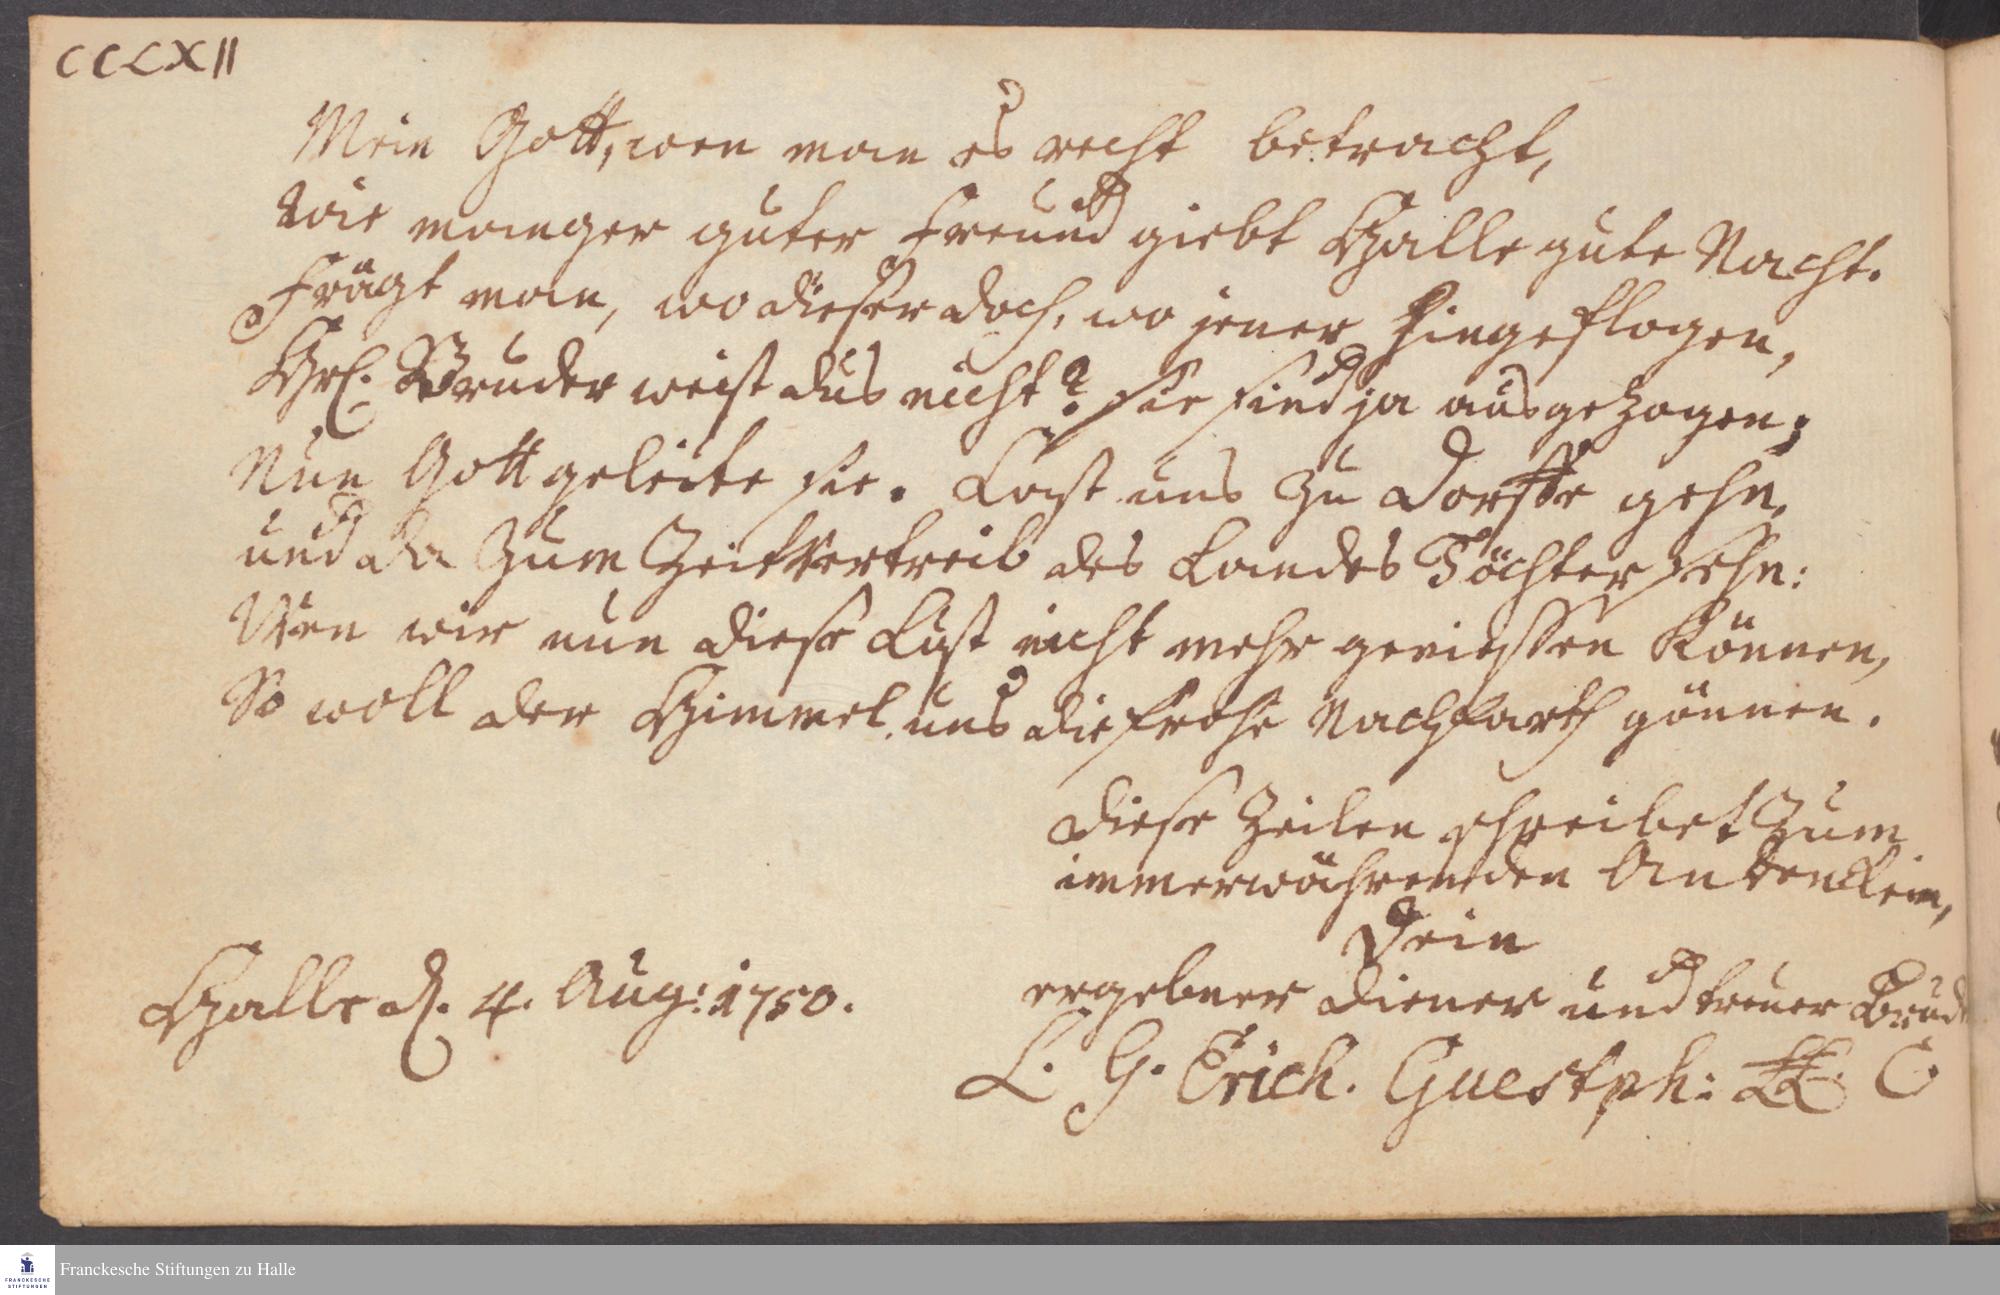 CCCLXII
Mein Gott, wen man es recht betracht,
Wie manger guter Freund giebt Halle gute Nacht.
Frägt man, wo dieser doch, wo jener hingeflogen,
Bruder weist dus nicht? sie sind ja ausgezogen;
Nun Gott geleite sie. Last uns zu Dorffe gehn,
und da zum Zeitvertreib des Landes Töchter sehn:
Wen wir nun diese Lust nicht mehr geniessen können,
So woll der Himmel uns die frohe Nachfarth gönnen.
Diese Zeilen schreibet zum
immerwährenden Andencken,
Dein
Halle d. 4. Aug: 1750.
ergebner Diener und treuer Brud
L. G. Erich. Guestph: C.
Franckesche Stiftungen zu Halle
FRANCKESCHE
STIFTUNGEN